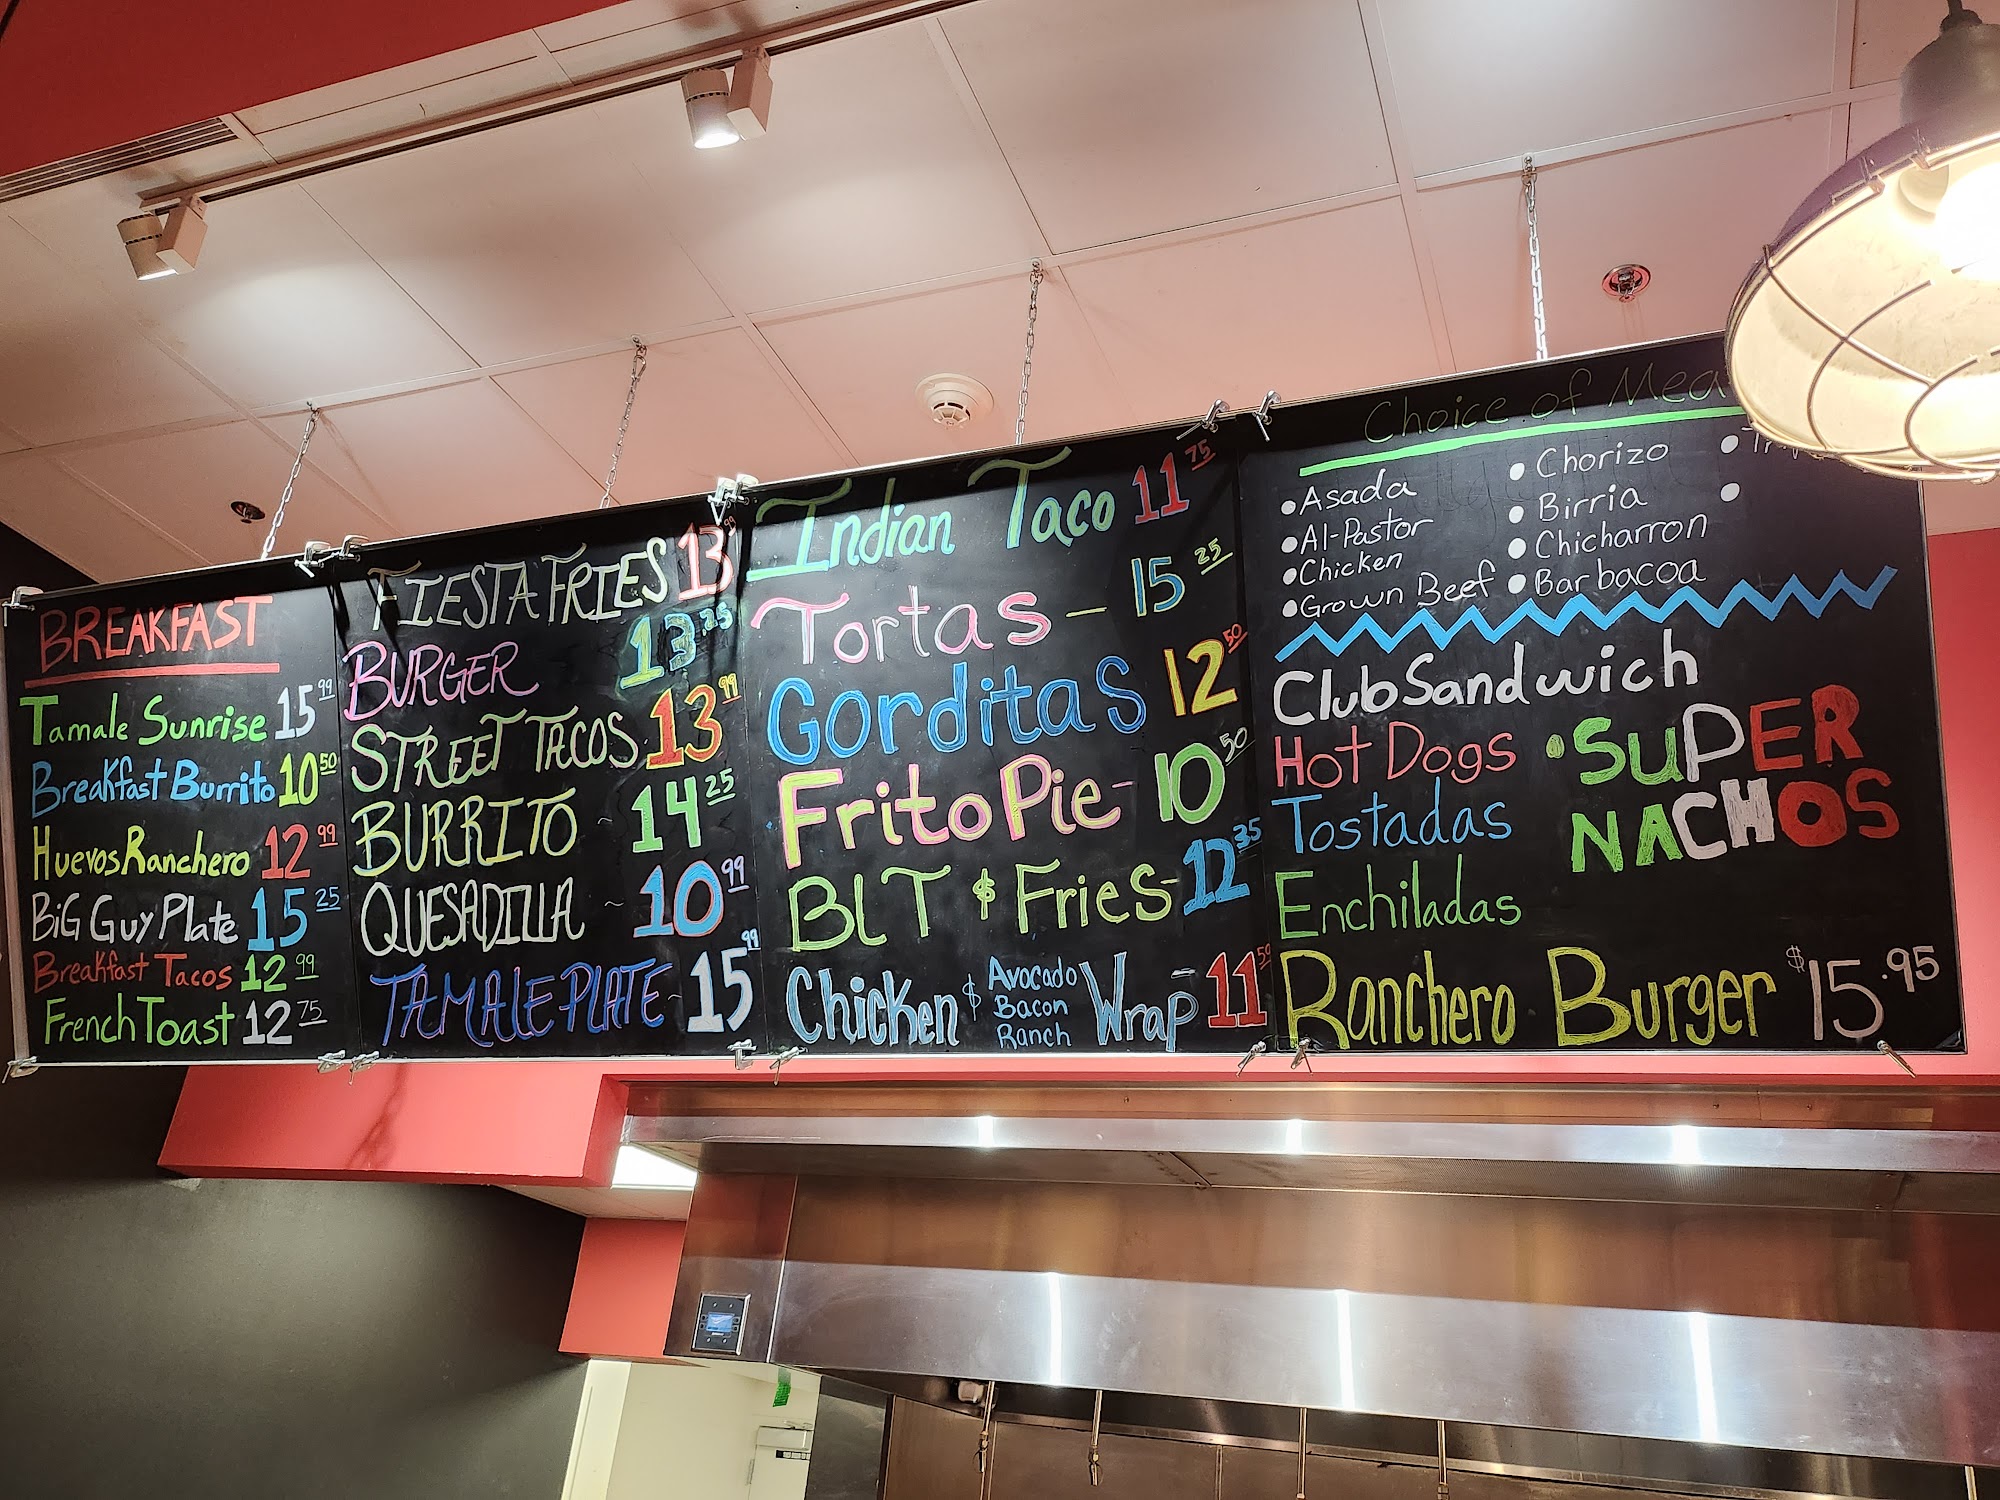 BREAKFAST
Tamale Sunrise 15 99
Breakfast Burrito 10 50
Huevos Ranchero 12 99
BiG Guy Plate 15 25
Breakfast Tacos 12 99
French Toast 12 75
FIESTA FRIES 13 99
BURGER 13 25
STREET TACOS 13 99
BURRITO ~ 14 25
QUESADILLA ~ 10 99
TAMALE PLATE ~ 15 99
Indian Taco 11 75
Tortas — 15 25
Gorditas 12 50
Frito Pie - 10 50
BLT & Fries - 12 35
Chicken & Avocado Bacon Ranch Wrap - 11 50
Choice of
• Asada
• Al-Pastor
• Chicken
• Grown Beef
• Chorizo
• Birria
• Chicharron
• Barbacoa
Club Sandwich
Hot Dogs
Tostadas
Enchiladas
• SuPER
NACHOS
Ranchero Burger $15.95